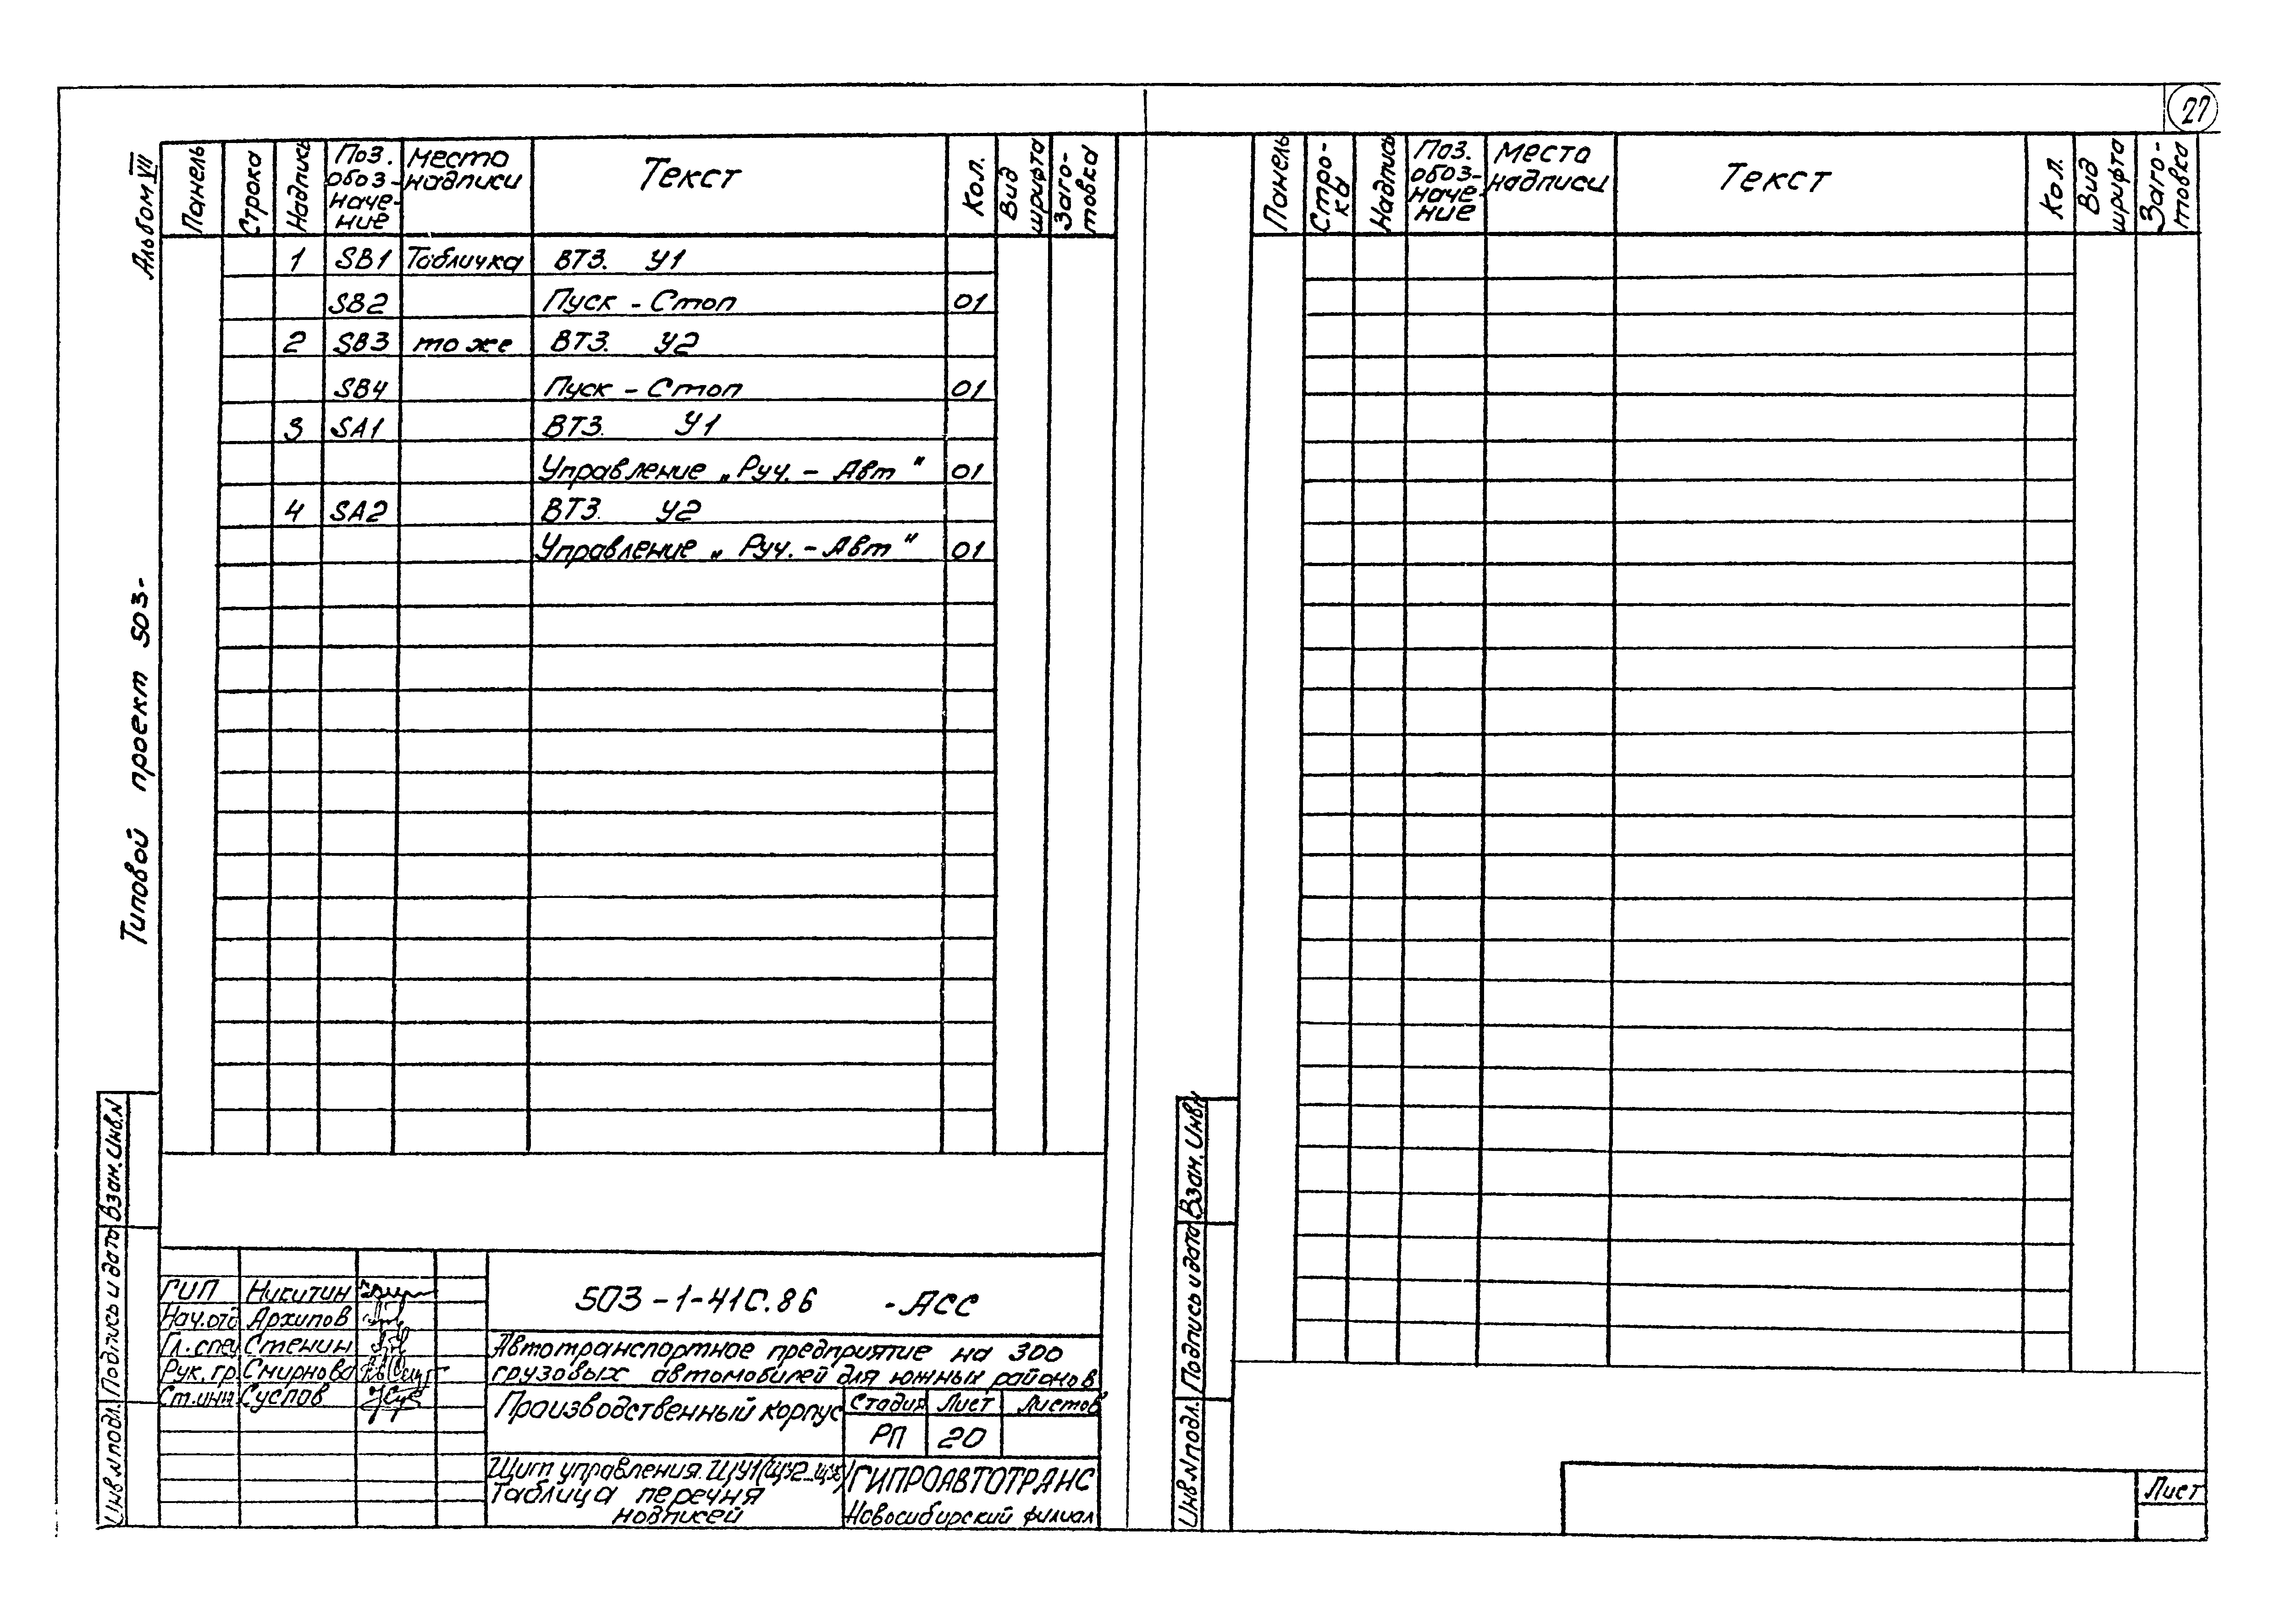 27
Альбом VII
Типовой проект 503-
Панель Строка Надпись Поз. обоз- наче- ние Место надписи Текст Кол. Вид шрифта Заго- товка
1 SB1 Табличка ВТЗ. У1
SB2 Пуск - Стоп 01
2 SB3 то же ВТЗ. У2
SB4 Пуск - Стоп 01
3 SA1 ВТЗ. У1
Управление „Руч. - Авт" 01
4 SA2 ВТЗ. У2
Управление „Руч. - Авт" 01
Инв.№подл. Подпись и дата Взам.Инв.№
ГИП Никитин
Нач.отд Архипов
Гл.спец Стенин
Рук.гр. Смирнова
Ст.инж Суслов
503-1-41С.86 -АСС
Автотранспортное предприятие на 300
грузовых автомобилей для южных районов
Производственный корпус
Стадия Лист Листов
РП 20
Щит управления. ЩУ1
Таблица перечня
надписей
ГИПРОАВТОТРАНС
Новосибирский филиал
Панель Стро- ка Надпись Поз. обоз- наче- ние Места надписи Текст Кол. Вид шрифта Заго- товка
Инв.№подл. Подпись и дата Взам.Инв№
Лист